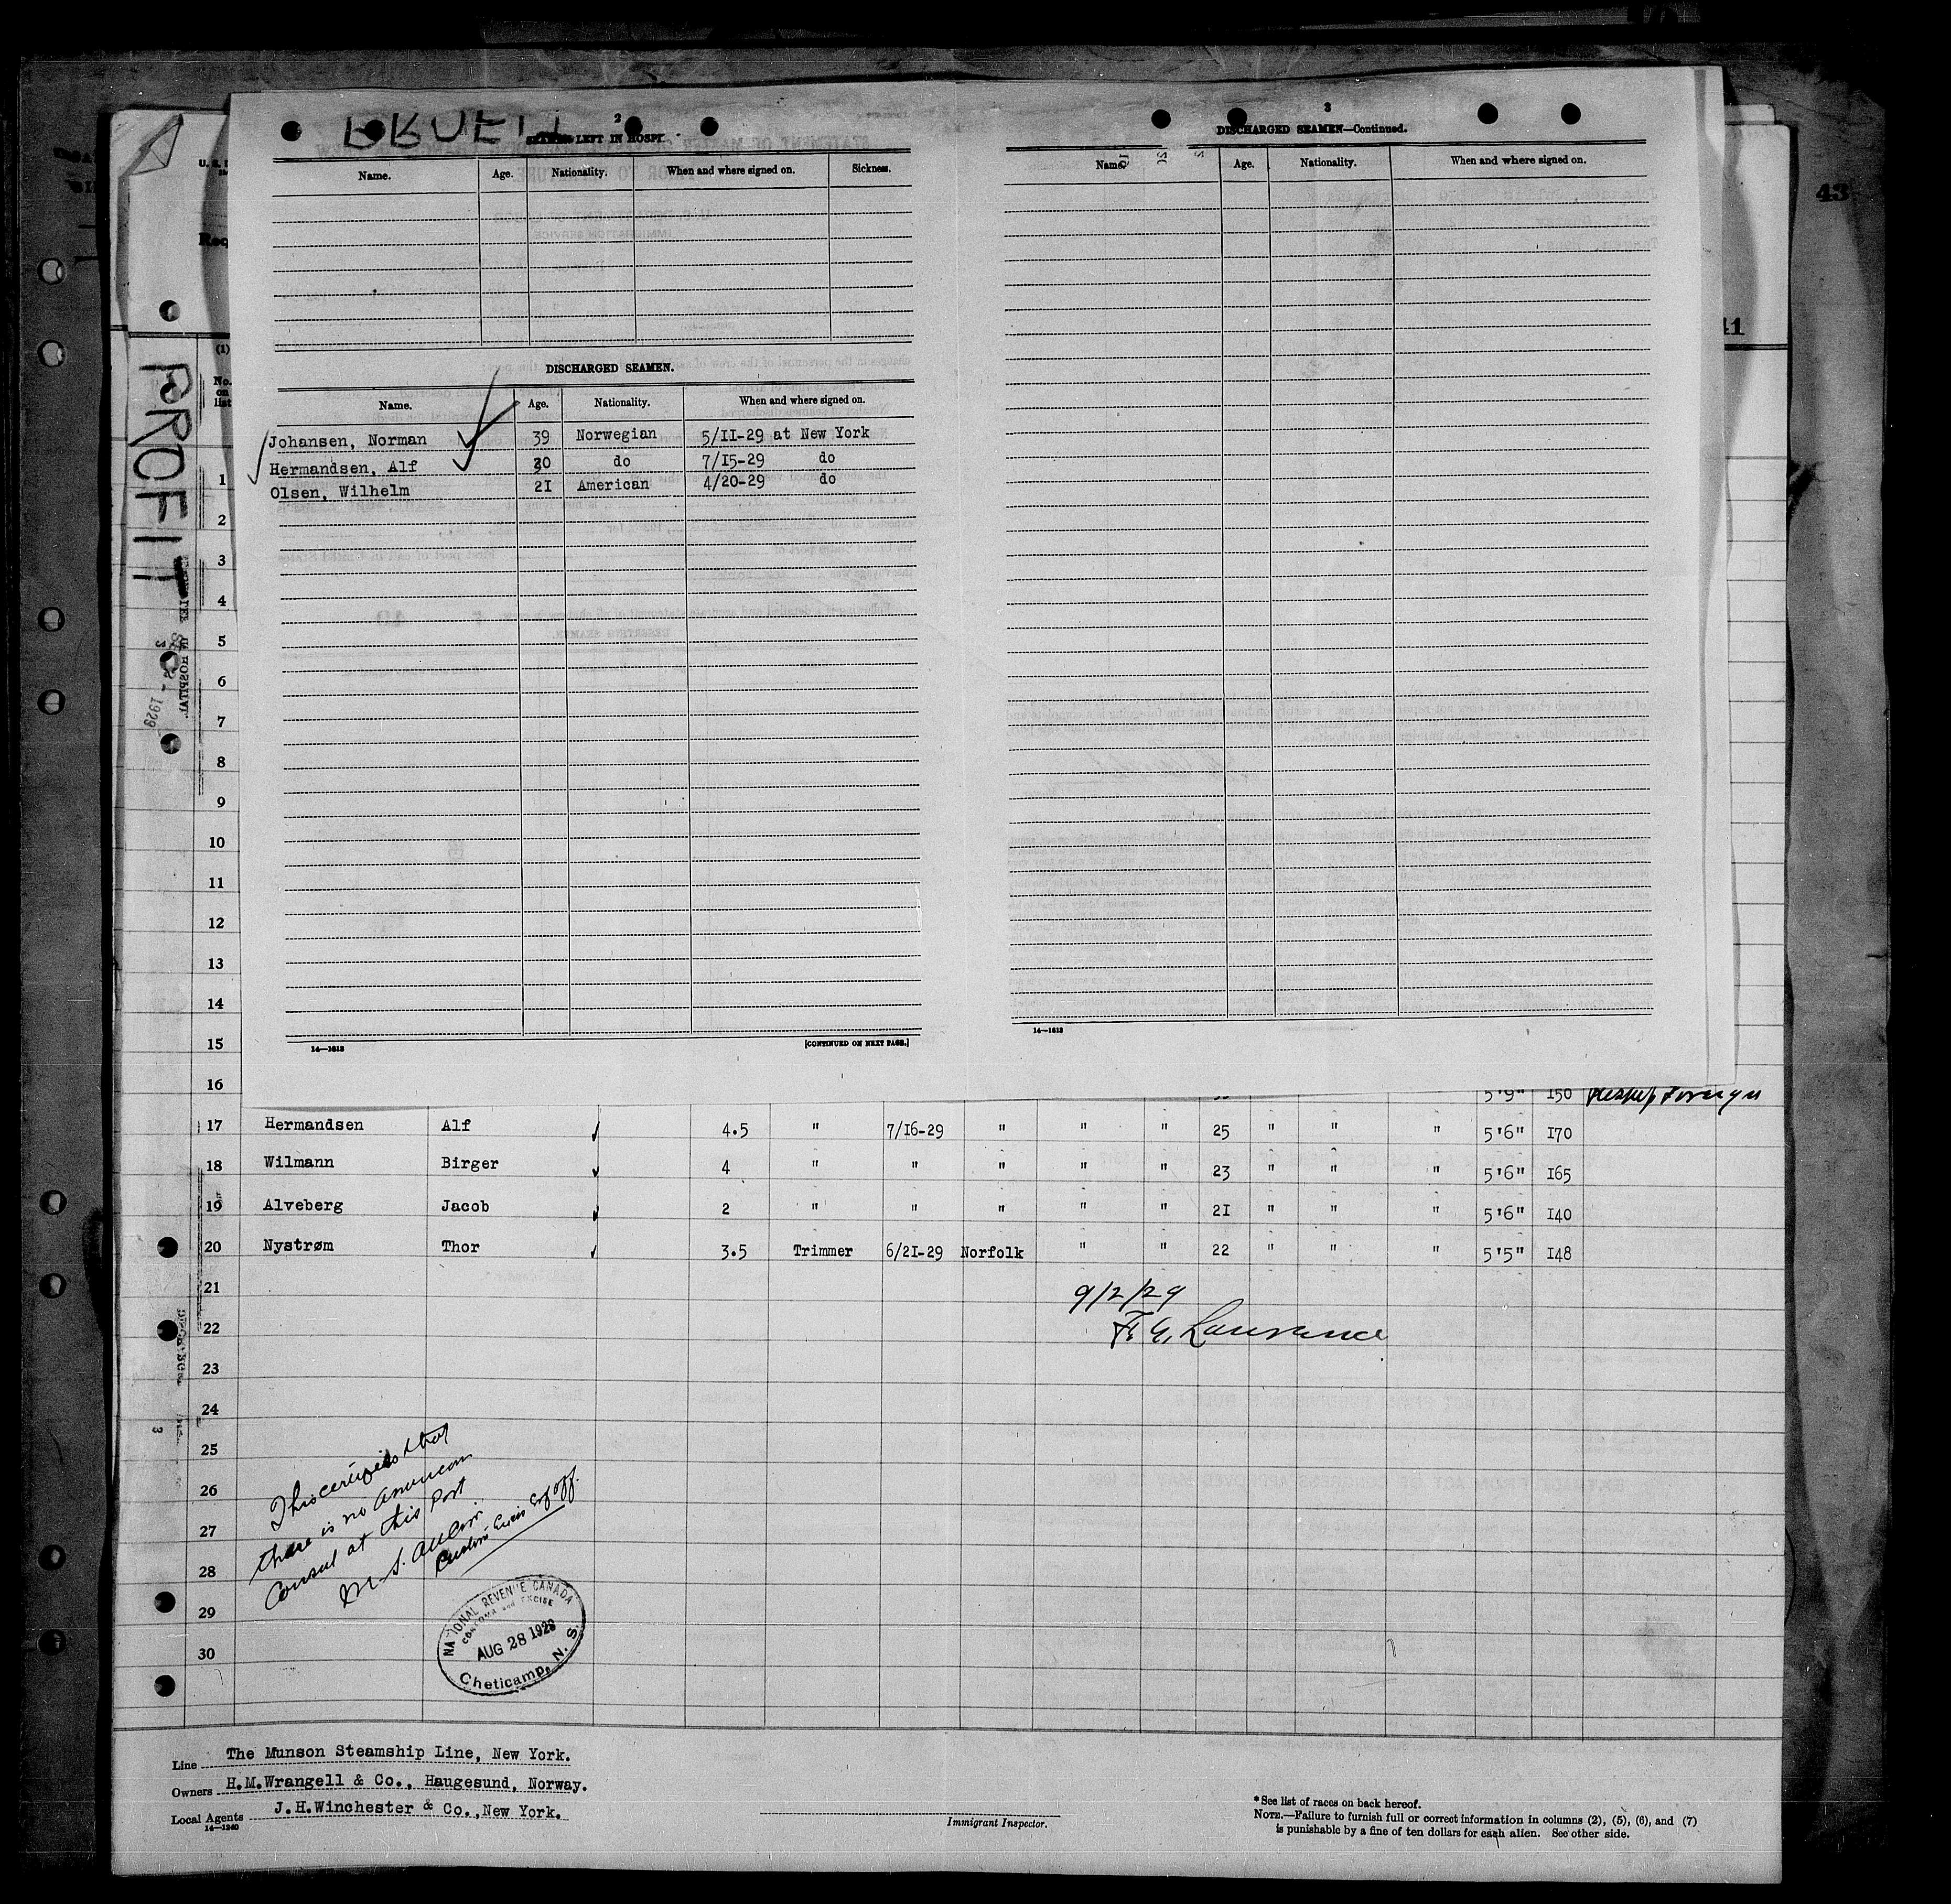 2
LEFT IN HOSPI
Name. Age. Nationality. When and where signed on. Sickness.
DISCHARGED SEAMEN.
Name. Age. Nationality. When and where signed on.
Johansen, Norman 39 Norwegian 5/II-29 at New York
Hermandsen, Alf 30 do 7/I5-29 do
Olsen, Wilhelm 2I American 4/20-29 do
14—1613 [CONTINUED ON NEXT PAGE.]
3
DISCHARGED SEAMEN—Continued.
Name. Age. Nationality. When and where signed on.
14—1613
43
41
PROFIT
(1)
No. on list
1
2
3
4
5
6
7
8
9
10
11
12
13
14
15
16 5'9" I50
17 Hermandsen Alf 4.5 " 7/I6-29 " " " 25 " " " 5'6" I70
18 Wilmann Birger 4 " " " " " 23 " " " 5'6" I65
19 Alveberg Jacob 2 " " " " " 2I " " " 5'6" I40
20 Nystrøm Thor 3.5 Trimmer 6/2I-29 Norfolk " " 22 " " " 5'5" I48
21
22
23
24
25
26
27
28
29
30
9/2/29
This certifies that
there is no American
Consul at this Port
NATIONAL REVENUE CANADA
CUSTOMS and EXCISE
AUG 28 1929
Cheticamp, N. S.
Line The Munson Steamship Line, New York.
Owners H.M.Wrangell & Co., Haugesund, Norway.
Local Agents J.H.Winchester & Co.,New York.
14—1240
Immigrant Inspector.
*See list of races on back hereof.
NOTE.—Failure to furnish full or correct information in columns (2), (5), (6), and (7)
is punishable by a fine of ten dollars for each alien. See other side.